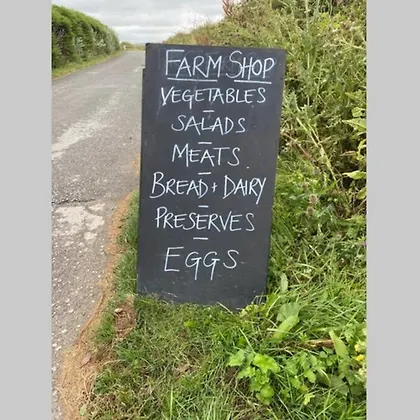 FARM SHOP
VEGETABLES
SALADS
MEATS
BREAD + DAIRY
PRESERVES
EGGS